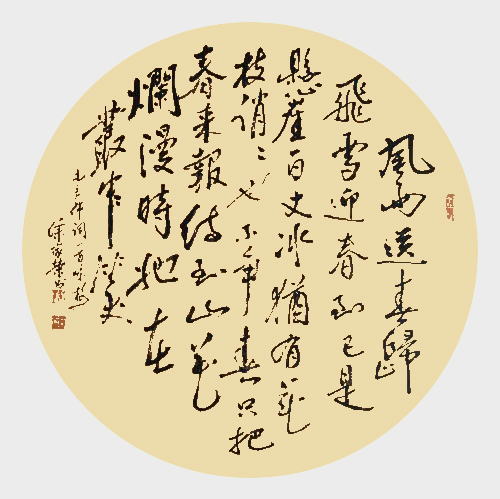 風雨送春歸
飛雪迎春到已是
懸崖百丈冰猶有花
枝俏〻也不争春只把
春来報待到山花
爛漫時她在
叢中笑
毛主席詞一首咏梅